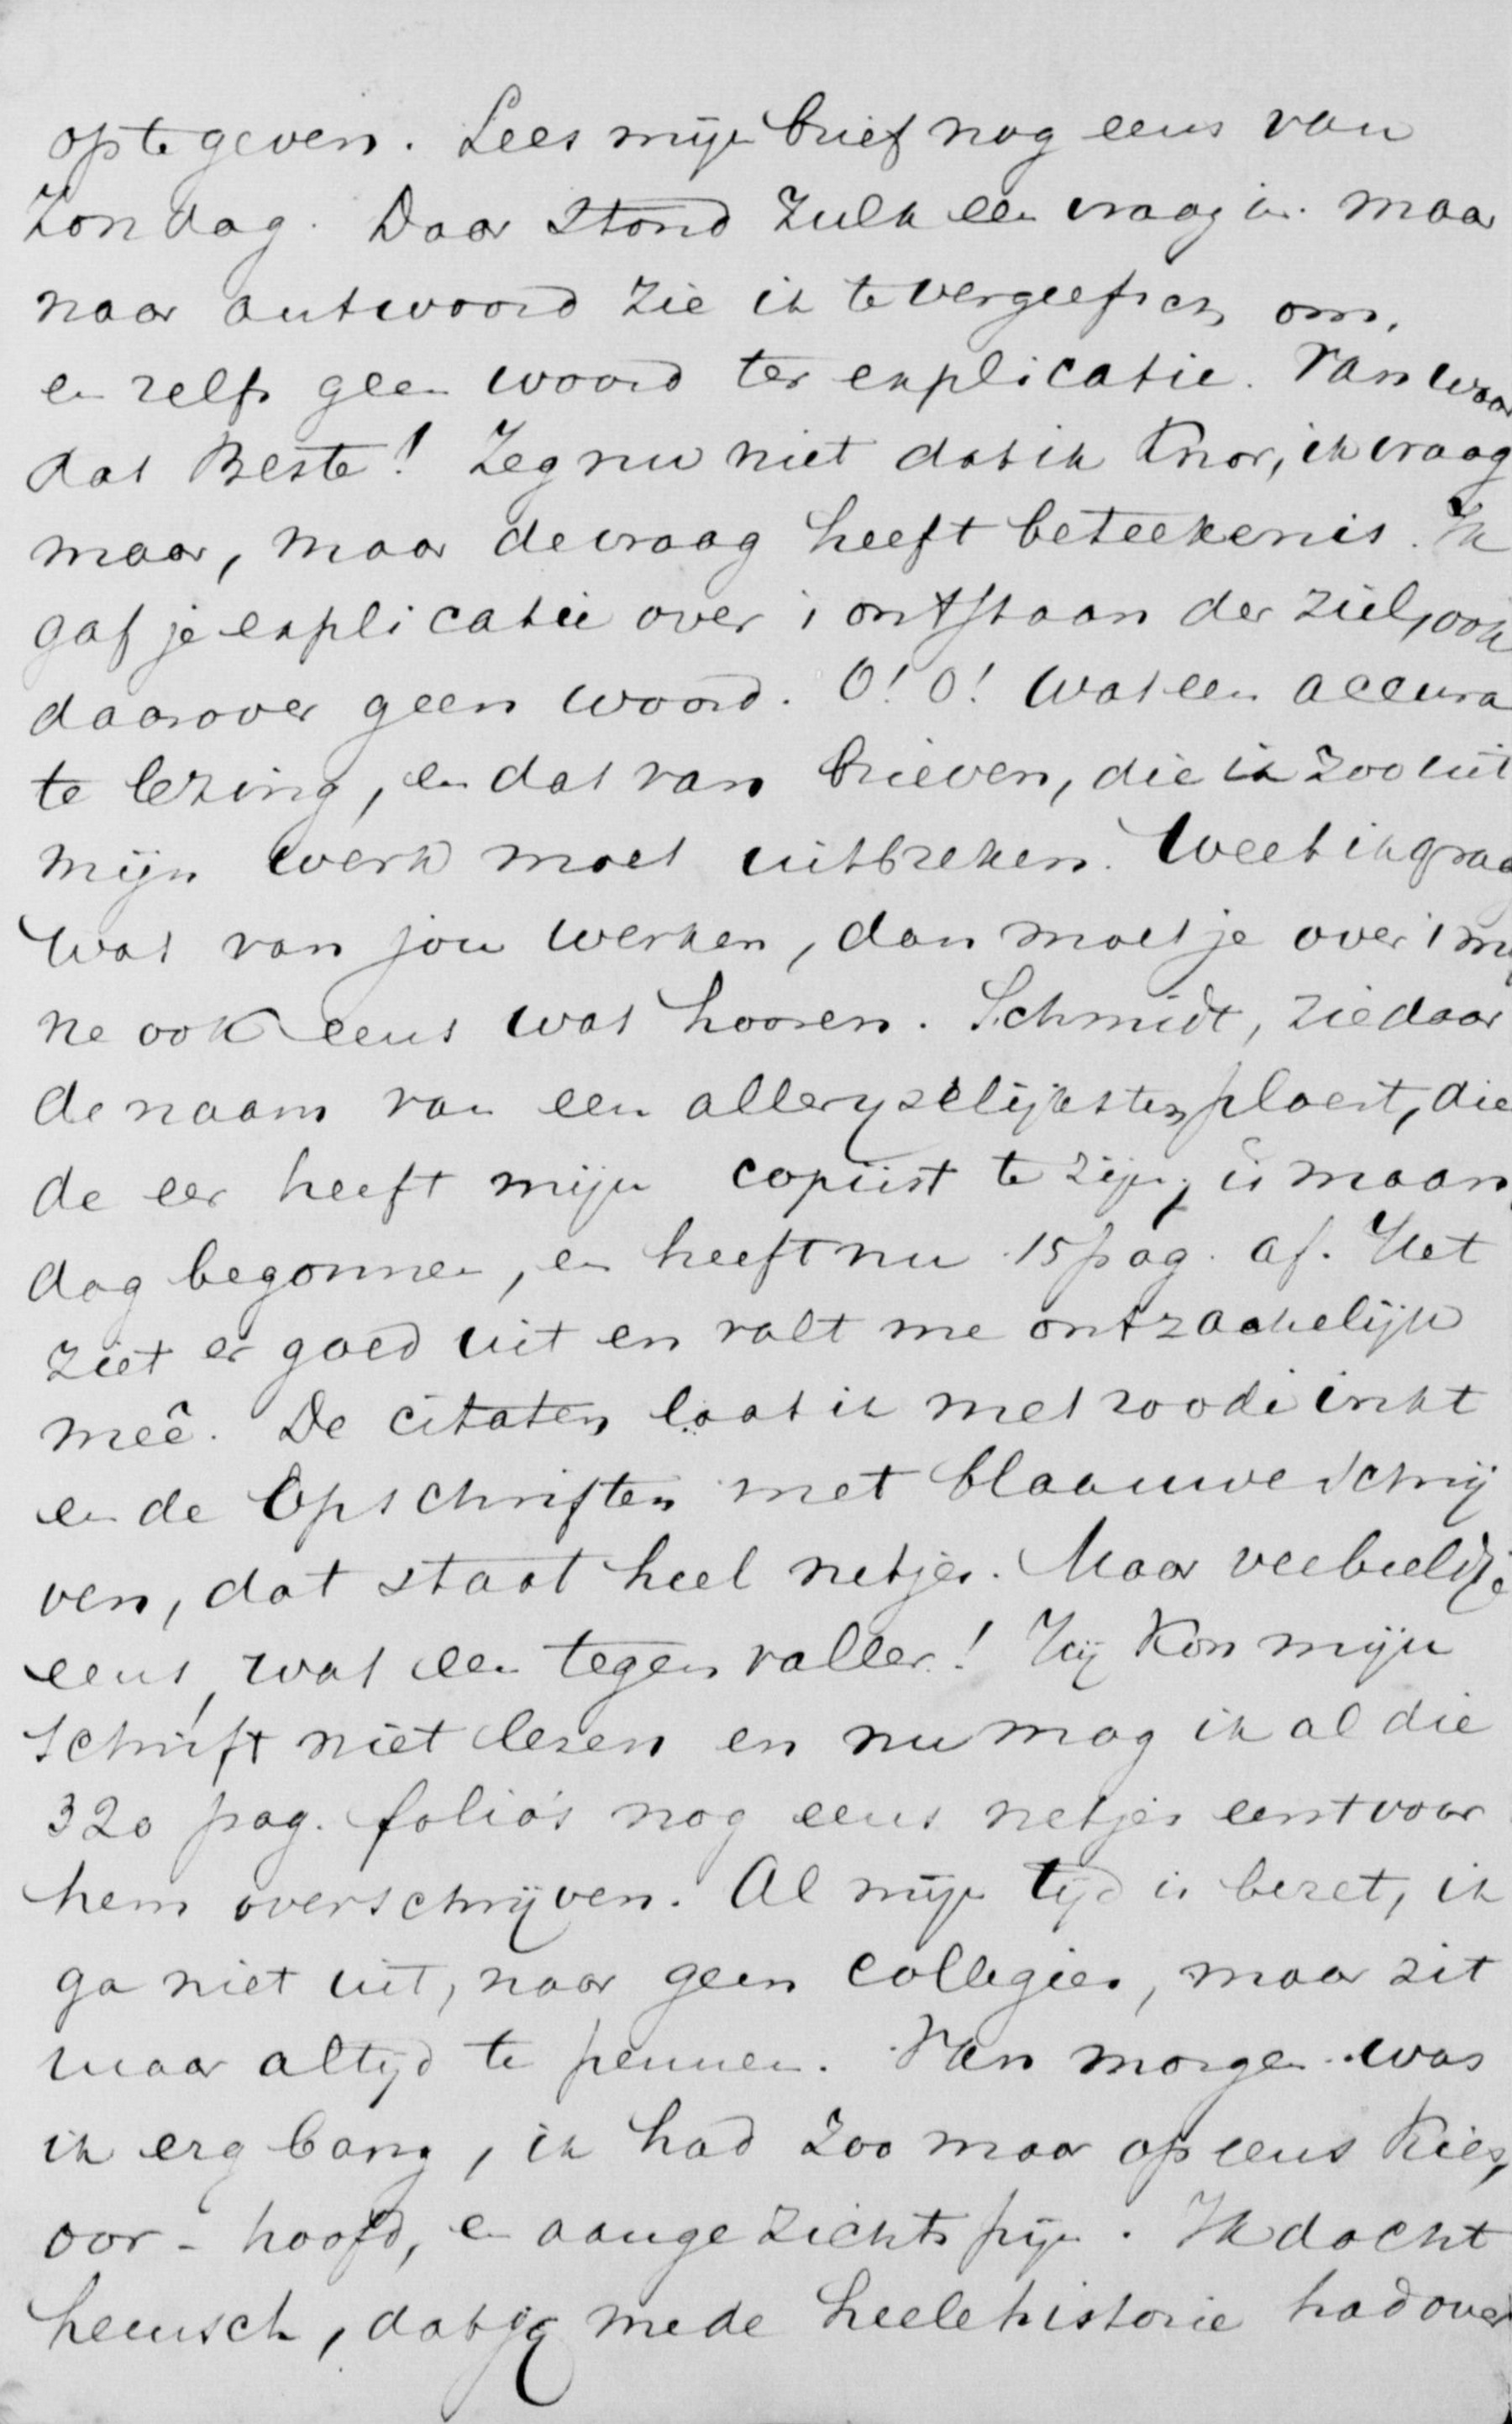 op te geven. Lees mijn brief nog eens van
Zondag. Daar stond zulk een vraag in. maar
naar antwoord zie ik te vergeefsch om,
en zelfs geen woord ter explicatie. Van waar
dat Beste! Zeg nu niet dat ik knor, ik vraag
maar, maar de vraag heeft beteekenis. Ik
gaf je explicatie over 't ontstaan der ziel, ook
daarover geen woord. O! O! wat een accura
te lezing, en dat van brieven, die ik zoo uit
mijn werk moet uitbreken. Weet ik graag
wat van jou werken, dan moet je over 't mij
ne ook eens wat hooren. Schmidt, ziedaar
de naam van een allerijzelijksten ploert, die
de eer heeft mijn copiist te zijn, is maan
dag begonnen, en heeft nu 15 pag. af. Het
ziet er goed uit en valt me ontzachelijk
meê. De citaten laat ik met roode inkt
en de Opschriften met blaauwe schrij
ven, dat staat heel netjes. Maar verbeeld je
eens, wat een tegenvaller! Hij kon mijn
schrift niet lezen en nu mag ik al die
320 pag. folio's nog eens netjes eerst voor
hem overschrijven. Al mijn tijd is bezet, ik
ga niet uit, naar geen collegies, maar zit
maar altijd te pennen. Van morgen was
ik erg bang, ik had zoo maar op eens kies,
oor - hoofd, en aangezichtspijn. Ik dacht
heusch, dat je me de heele historie had over